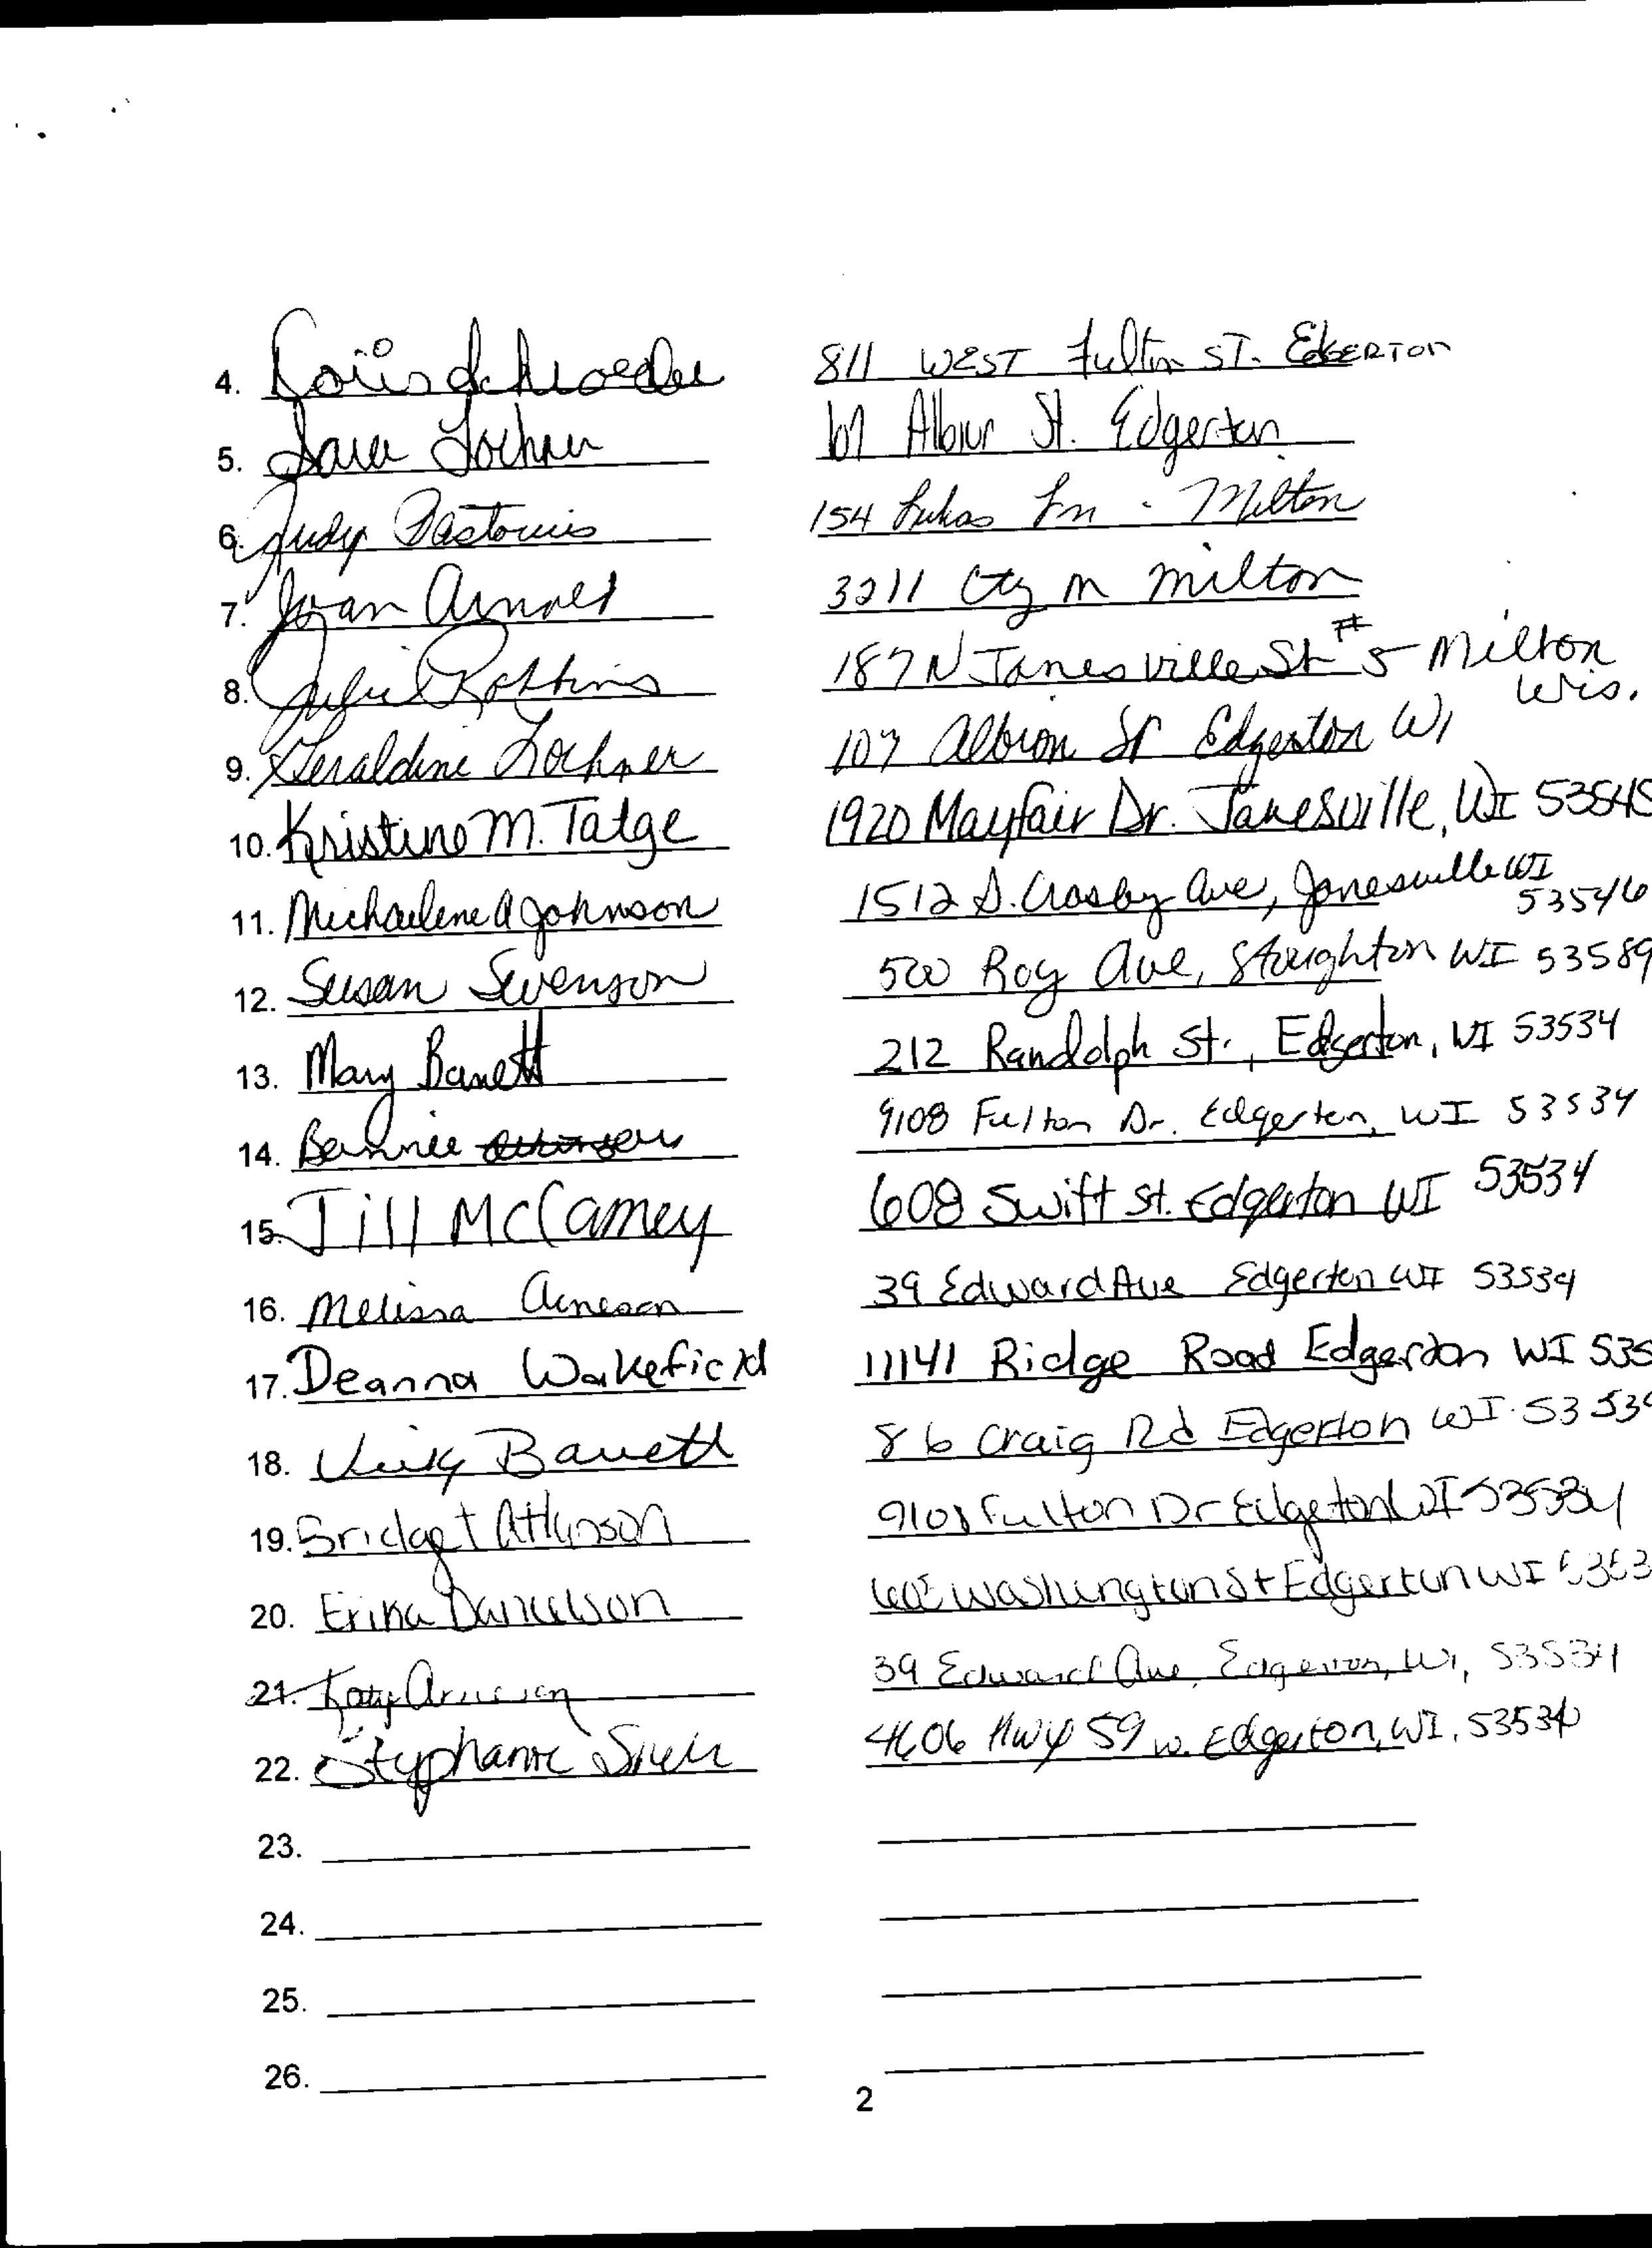 4. Lois Schroeder 811 WEST Fulton ST. EDGERTON
5. Sara Lochner 107 Albion St. Edgerton
6. Judy Pastorius 154 Lukas Ln - Milton
7. Joan Arnold 3211 Cty M Milton
8. Julie Robbins 187 N Janesville St #5 Milton
Wis.
9. Geraldine Lochner 107 Albion St Edgerton WI
10. Kristine M. Tatge 1920 Mayfair Dr. Janesville, WI 53545
11. Michaelene A Johnson 1512 S. Crosby Ave, Janesville WI
53546
12. Susan Swenson 500 Roy Ave, Stoughton WI 53589
13. Mary Barrett 212 Randolph St., Edgerton, WI 53534
14. 9108 Fulton Dr. Edgerton, WI 53534
15. Jill McCamey 608 Swift St. Edgerton WI 53534
16. Melissa Arneson 39 Edward Ave Edgerton WI 53534
17. Deanna Wakefield 11141 Ridge Road Edgerton WI 535
18. Barrett 86 Craig Rd Edgerton WI 53534
19. Bridget Atkinson 9108 Fulton Dr Edgeton WI 53534
20. Erika Danielson Washington St Edgerton WI
21. Katy Arneson 39 Edward Ave, Edgerton, WI, 53534
22. Stephanie 4606 HWY 59 W. Edgerton, WI, 53534
23.
24.
25.
26.
2